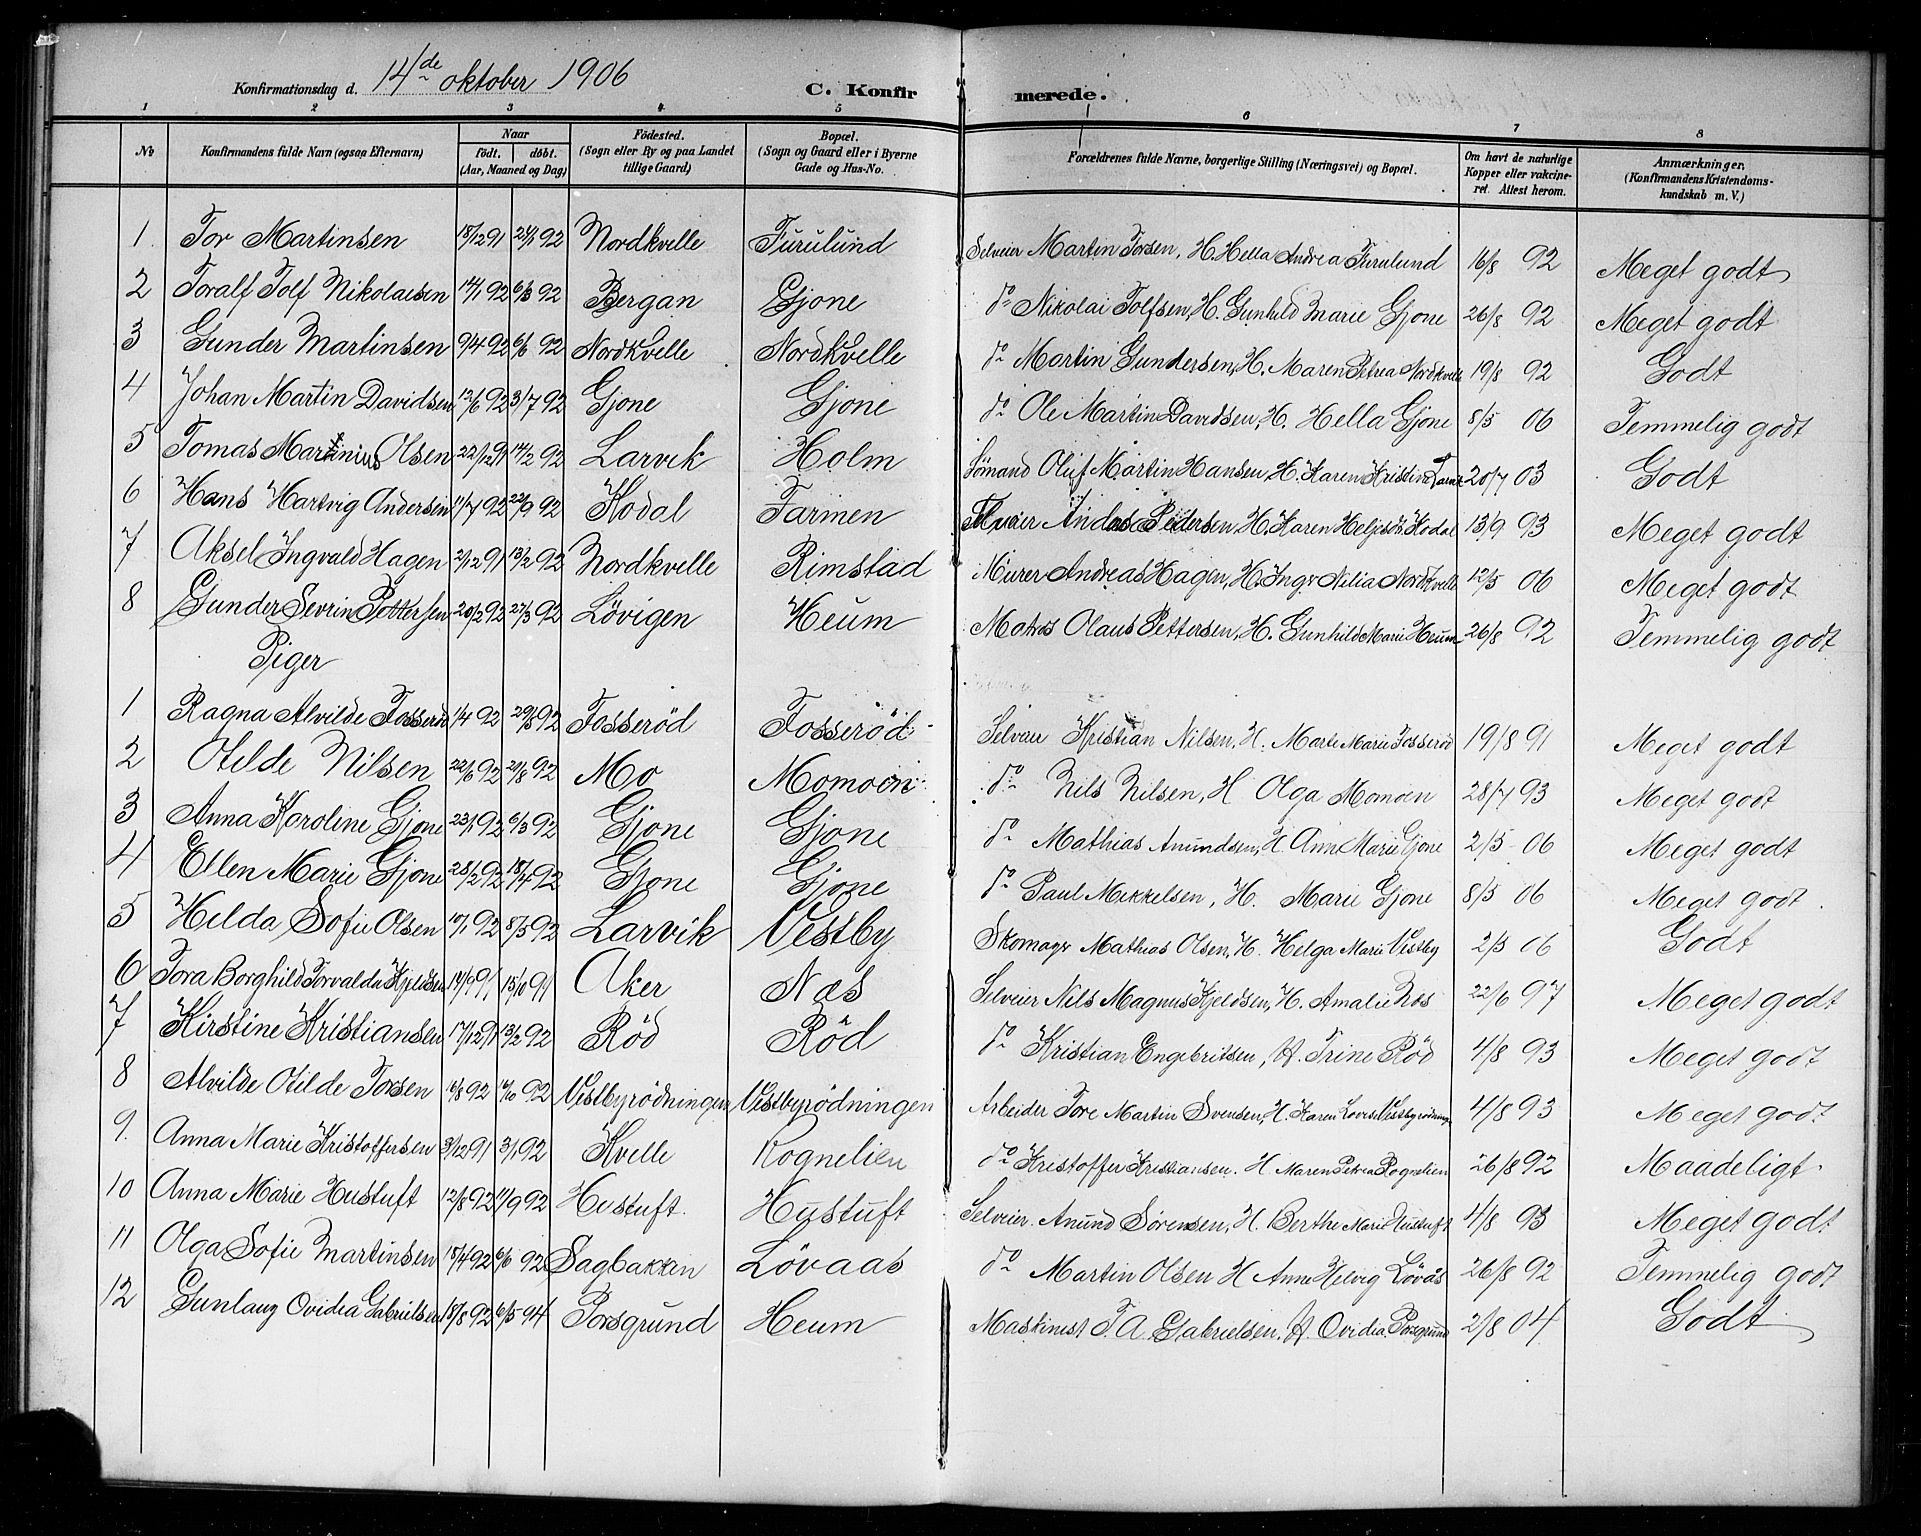 Konfirmationsdag d. 14de oktober 1906
C. Konfirmerede.
1 2 3 4 5 6 7 8
No
Konfirmandens fulde Navn (ogsaa Efternavn)
Naar
født. døbt.
(Aar, Maaned og Dag)
Fødested.
(Sogn eller By og paa Landet tillige Gaard)
Bopæl.
(Sogn og Gaard eller i Byerne Gade og Hus-No.
Forældrenes fulde Navne, borgerlige Stilling (Næringsvei) og Bopæl.
Om havt de naturlige Kopper eller vakcineret. Attest herom.
Anmærkninger.
(Konfirmandens Kristendomskundskab m. V.)
1 Tor Martinsen 18/12 91 24/1 92 Nordkvelle Furulund Selveier Martin Torsen, H. Hella Andrea Furulund 16/8 92 Meget godt
2 Toralf Tolf Nikolaisen 14/1 92 6/3 92 Bergan Gjone do Nikolai Tolfsen, H. Gunhild Marie Gjone 26/8 92 Meget godt
3 Gunder Martinsen 9/4 92 6/6 92 Nordkvelle Nordkvelle do Martin Gundersen, H. Maren Petrea Nordkvelle 19/8 92 Godt
4 Johan Martin Davidsen 12/6 92 3/7 92 Gjone Gjone do Ole Martin Davidsen, H. Hella Gjone 8/5 06 Temmelig godt
5 Tomas Martinius Olsen 22/12 91 14/2 92 Larvik Holm Sømand Oluf Martin Hansen, H. Karen Kristine 20/7 03 Godt
6 Hans Hartvig Andersen 11/7 92 22/9 92 Kodal Farmen Selveier Andreas Pedersen, H. Karen Kodal 13/9 93 Meget godt
7 Aksel Ingvald Hagen 2/12 91 13/2 92 Nordkvelle Rimstad Murer Andreas Hagen, H. Ingr Nilia Nordkvelle 12/5 06 Meget godt
8 Gunder Sevrin Pettersen 20/2 92 27/3 92 Lövigen Heum Matros Olaus Pettersen, H. Gunhild Marie Heum 26/8 92 Temmelig godt
Piger
1 Ragna Alvilde Fosserød 1/4 92 29/5 92 Fosserød Fosserød Selveier Kristian Nilsen, H. Marte Marie Fosserød 19/8 91 Meget godt
2 Otilde Nilsen 22/6 92 21/8 92 Mo Momoen do Nils Nilsen, H Olga Momoen 28/7 93 Meget godt
3 Anna Karoline Gjone 23/1 92 6/3 92 Gjone Gjone do Mathias Anundsen, H. Ann Marie Gjone 2/5 06 Meget godt
4 Ellen Marie Gjone 28/2 92 18/4 92 Gjone Gjone do Paul Mikkelsen, H. Marie Gjone 8/5 06 Meget godt.
5 Hilda Sofie Olsen 10/1 92 8/5 92 Larvik Vestby Skomagr Mathias Olsen, H. Helga Marie Vestby 2/5 06 Godt
6 Tora Borghild Torvalda Kjeldsen 14/9 91 15/10 91 Aker Næs Selveier Nils Magnus Kjeldsen, H. Amalie Næs 22/6 97 Meget godt
7 Kirstine Kristiansen 17/12 91 13/2 92 Rød Rød do Kristian Engebritsen, H Trine Rød 4/8 93 Meget godt
8 Alvilde Otilde Torsen 16/8 92 16/10 92 Vestbyrødningen Vestbyrødningen Arbeider Tore Martin Svensen, H. Karen Lovise Vestbyrødningen 4/8 93 Meget godt
9. Anna Marie Kristoffersen 3/12 91 3/1 92 Kvelle Rognelien do Kristoffer Kristiansen. H Maren Petrea Rognelien 26/8 92 Maadeligt
10 Anna Marie Hustuft 12/8 92 11/9 92 Hustuft. Hustuft Selveier. Anund Sørensen, H. Berthe Marie Hustuft 4/8 93 Meget godt
11 Olga Sofie Martinsen 18/4 92 6/6 92 Sagbakken Løvaas do Martin Olsen H Anne Helvig Løvås 26/8 92 Temmelig godt
12 Gunlaug Ovidia Gabrielsen 18/8 92 6/5 94 Porsgrund Heum Maskinist T. A. Gabrielsen, H. Ovidia Porsgrund 2/8 04 Godt